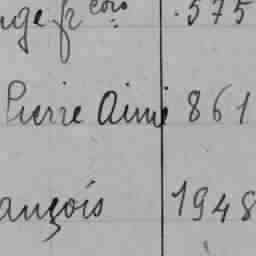 uge fr çois 575
Pierre Aimé 861
ançois 1948